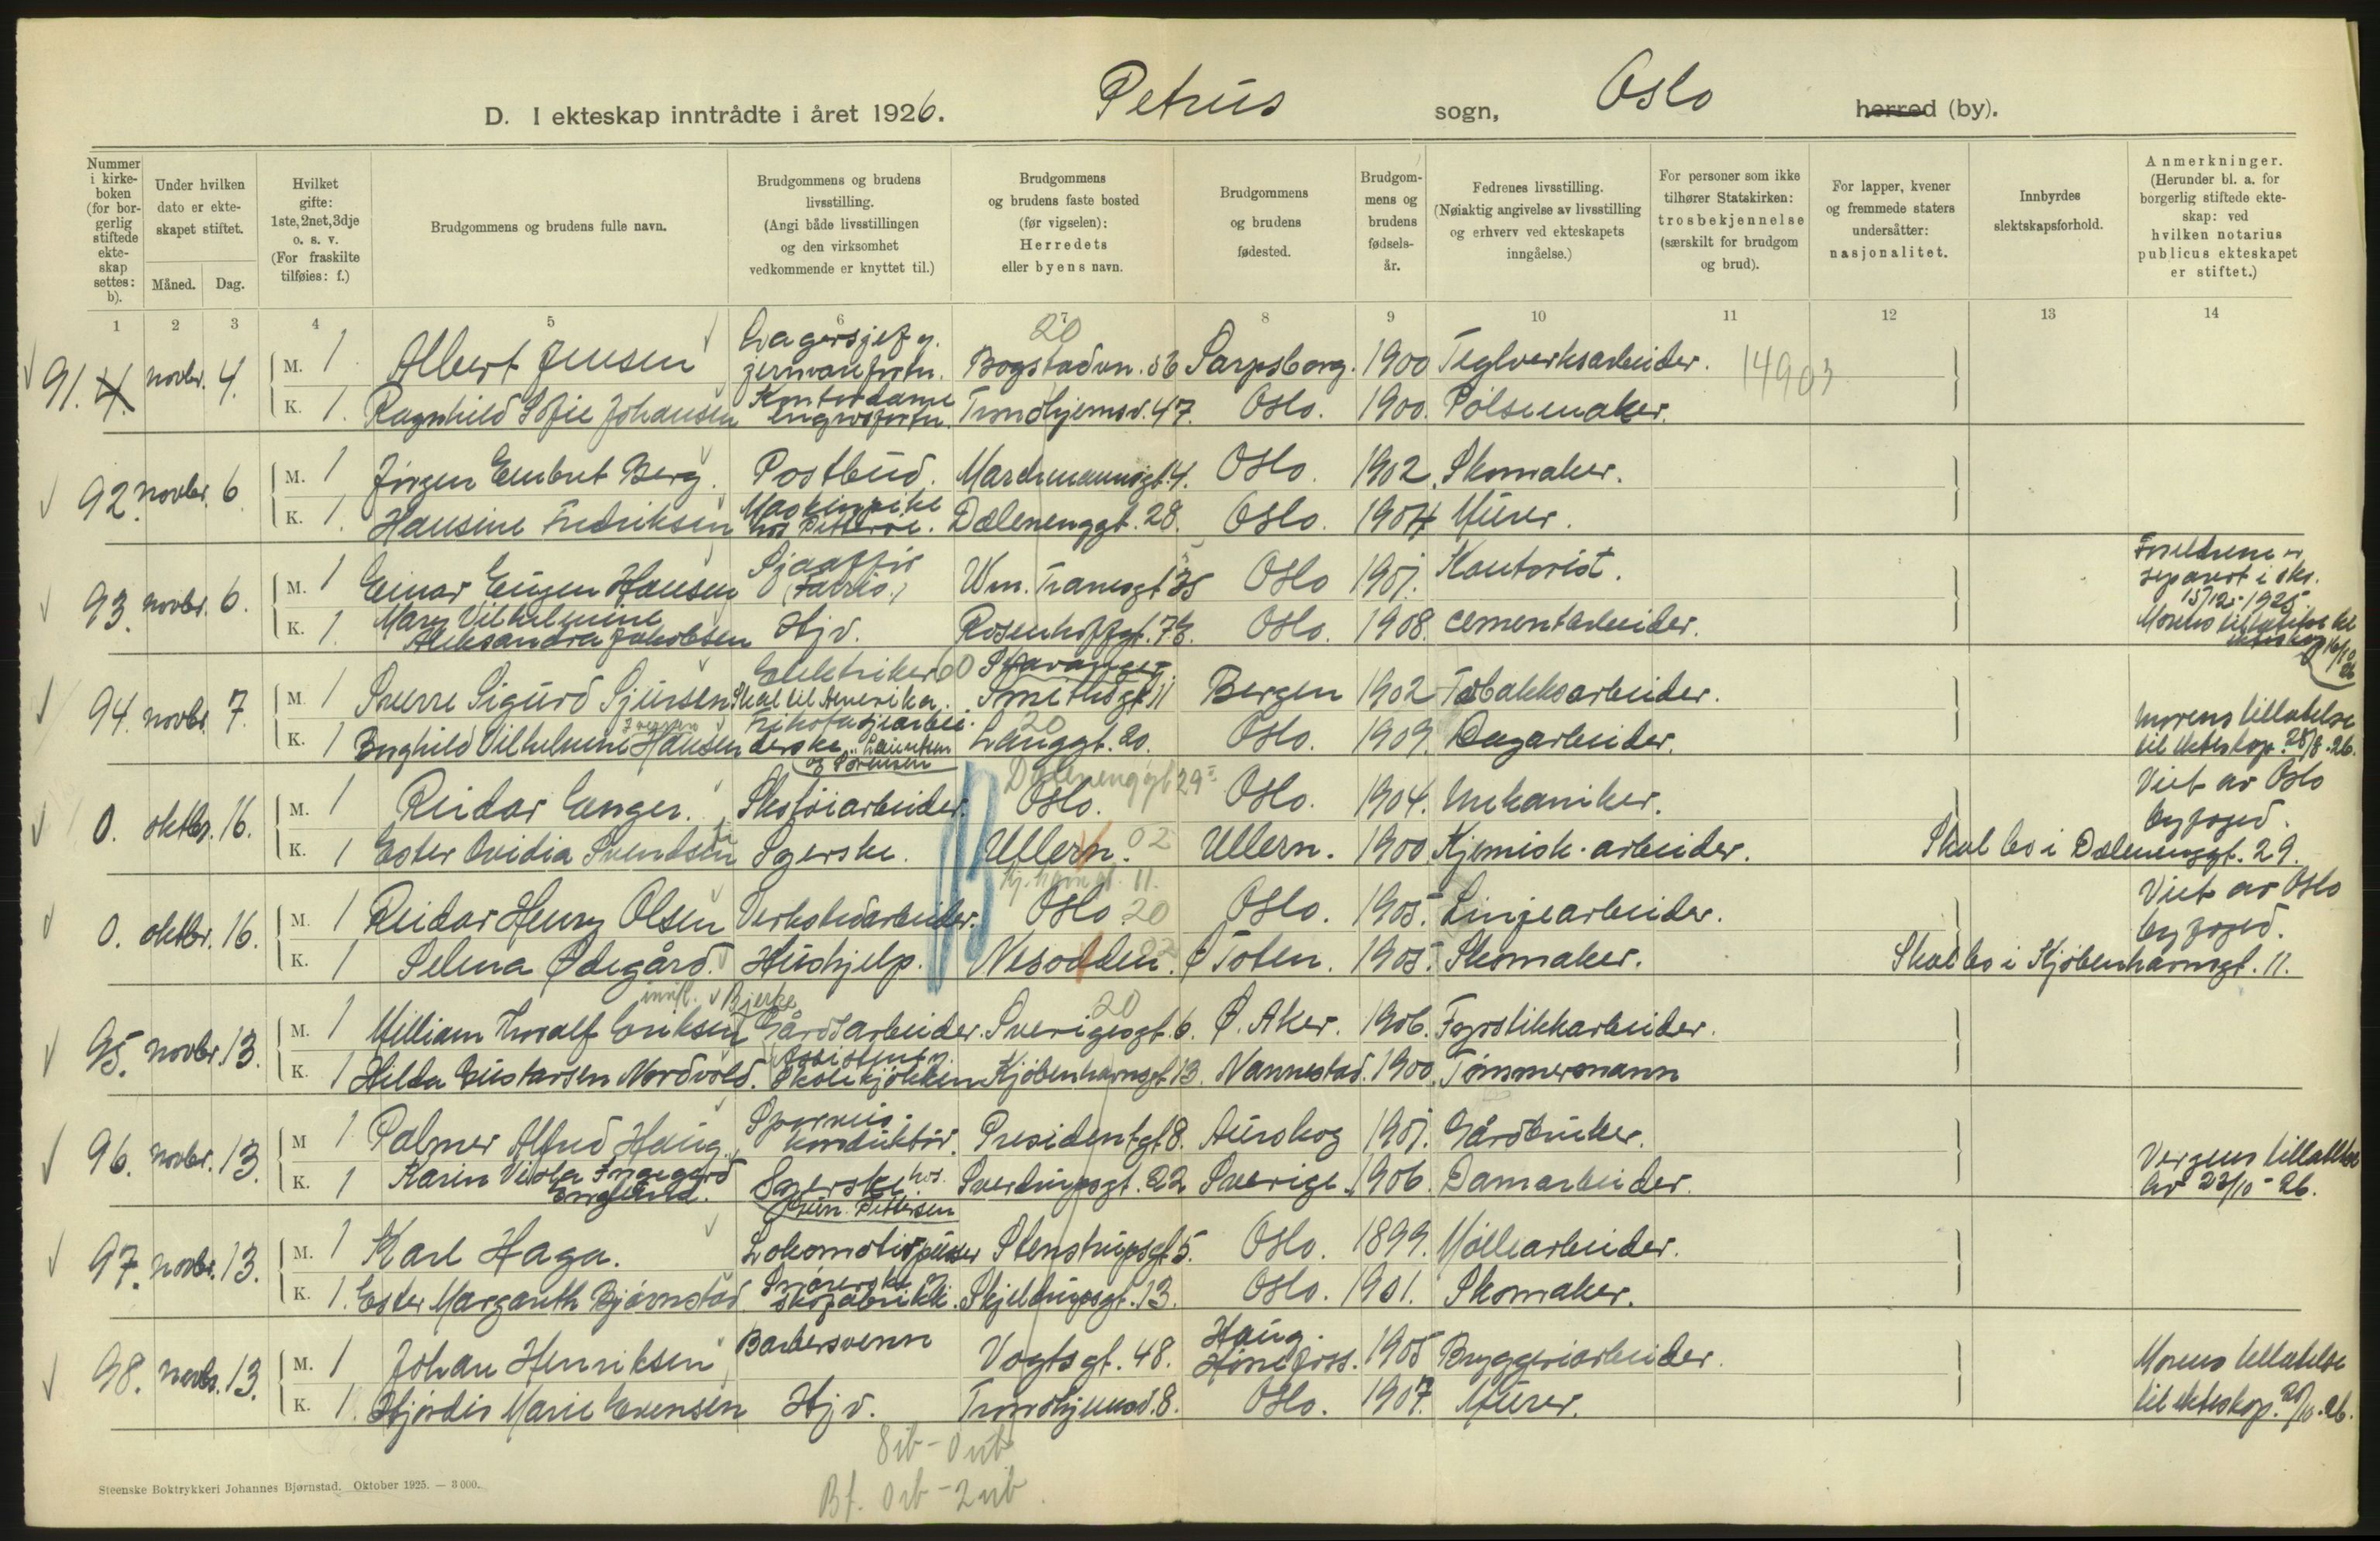 D. I ekteskap inntrådte i året 1926. Petrus sogn, Oslo herred (by).
Nummer i kirkeboken (for borgerlig stiftede ekteskap settes: b).
Under hvilken dato er ekteskapet stiftet.
Måned. Dag.
Hvilket gifte: 1ste, 2net, 3dje o. s. v. (For fraskilte tilføies: f.)
Brudgommens og brudens fulle navn.
Brudgommens og brudens livsstilling. (Angi både livsstillingen og den virksomhet vedkommende er knyttet til.)
Brudgommens og brudens faste bosted (før vigselen): Herredets eller byens navn.
Brudgommens og brudens fødested.
Brudgommens og brudens fødselsår.
Fedrenes livsstilling. (Nøiaktig angivelse av livsstilling og erhverv ved ekteskapets inngåelse.)
For personer som ikke tilhører Statskirken: trosbekjennelse (særskilt for brudgom og brud).
For lapper, kvener og fremmede staters undersåtter: nasjonalitet.
Innbyrdes slektskapsforhold.
Anmerkninger. (Herunder bl. a. for borgerlig stiftede ekteskap: ved hvilken notarius publicus ekteskapet er stiftet.)
1 2 3 4 5 6 7 8 9 10 11 12 13 14
91. novbr. 4. M. 1 Albert Jensen Lagersjef Bogstadvn. 56 20 Sarpsborg. 1900 Teglverksarbeider. 14903
K. 1. Ragnhild Sofie Johansen Kontordame engrosforrtn. Trondhjemsv. 47. Oslo. 1900. Pølsemaker.
92. novbr. 6. M. 1 Jørgen Embret Berg. Postbud. Marchmannsgt. 4. Oslo. 1902. Skomaker.
K. 1. Hansine Fredriksen Maskinpike Dælenenggt. 28. Oslo. 1904 Murer.
93. novbr. 6. M. 1 Einar Eugen Hansen Sjaaffør Wm. Tranesgt 35 Oslo Kontorist.
K. 1. Mary Vilhelmine Aleksandra Jakobsen Hjv. Rosenhoffgt. Oslo. 1908. Cementarbeider.
Foreldrene er separert i
15/12-1925
94. novbr. 7. M. 1 Sverre Sigurd Sjursen Elektriker Skal til Amerika. Stavanger Smithsgt 11 Bergen 1902 Tobakksarbeider.
K. 1 Borghild Vilhelmine Hansen Trikotasjearbeiderske Langgt. 20. 20 Oslo. 1909. Dagarbeider.
Morens tillatelse
til ekteskap 28/8-26.
0. oktbr. 16. M. 1 Reidar Enger. Skotøiarbeider. Oslo. Dælenenggt 29 Oslo. 1904. Mekaniker. Viet av Oslo
byfoged.
K. 1 Ester Ovidia Svendsen Syerske. Ullern. 02 Ullern. 1900 Kjemisk. arbeider. Skal bo i Dælenenggt. 29.
0. oktbr. 16. M. 1 Reidar Henry Olsen Verkstedarbeider. Oslo. 20 Kj.havngt. 11. Oslo. 1905. Linjearbeider. Viet av Oslo
byfoged.
K. 1 Selma Ødegård. Hushjelp. Nesodden. 02 Ø Toten. 1905. Skomaker. Skal bo i Kjøbenhavnsgt. 11.
95. novbr. 13. M. 1 William Thoralf Eriksen Bjerke Gårdsarbeider. Sverigesgt. 6. 20 Ø. Aker. 1906. Fyrstikkarbeider.
K. 1 Hilda Gustavsen Nordvold. Assistent Skolekjøkken Kjøbenhavnsgt 13. Nannestad. 1900. Tømmermann
96. novbr. 13. M 1 Palmer Alfred Haug. Sporveiskonduktør. Presidentgt 8. Aurskog Gårdbruker.
K. 1 Karin Viola Ingegerd Englund. Syerske hos Pettersen Sverdrupsgt. 22 Sverige. 1906. Damarbeider.
Vergens tillatelse
av 23/10-26.
97. novbr. 13. M. 1 Karl Haga. Lokomotivpusser Stenstrupsgt 5. Oslo. 1899. Møllearbeider.
K. 1. Ester Margareth Bjørnstad. skofabrikk. Skjeldrupsgt. 13. Oslo. 1901. Skomaker.
98. novbr. 13. M. 1 Johan Henriksen Barbersvenn Vogtsgt. 48. Haug. Hønefoss. 1905 Bryggeriarbeider. Morens tillatelse
K. 1. Hjørdis Marie Evensen Hjv. Trondhjemsv. 8. Oslo. 1907. Murer. til ekteskap. 20/10-26.
8 ib - 0 ub
Bf. 0 ib - 2 uib
Steenske Boktrykkeri Johannes Bjørnstad. Oktober 1925. — 3 000.